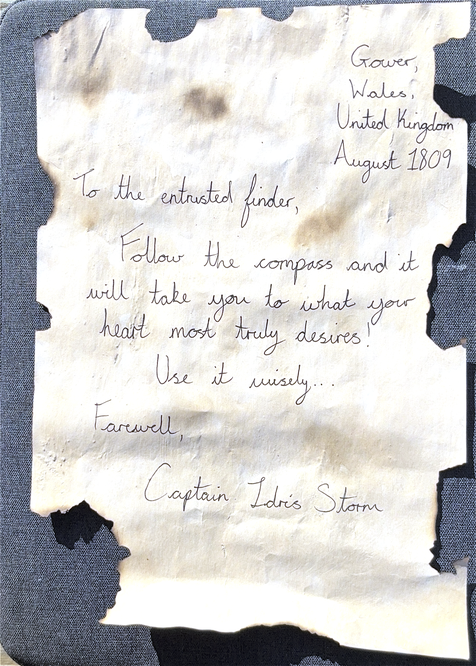 Gower,
Wales,
United Kingdom
August 1809
To the entrusted finder,
Follow the compass and it
will take you to what your
heart most truly desires!
Use it wisely...
Farewell,
Captain Idris Storm